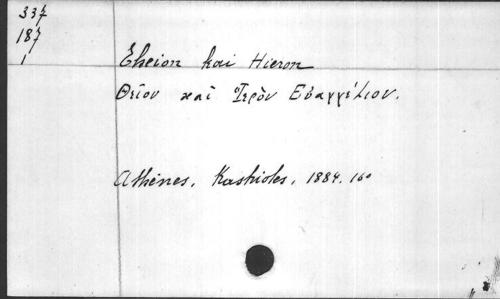 337
187
1
Eheion kai Hieron
Θεῖον καὶ Ἱερὸν Εὐαγγέλιον.
Athènes, Kashioles, 1884. 16o